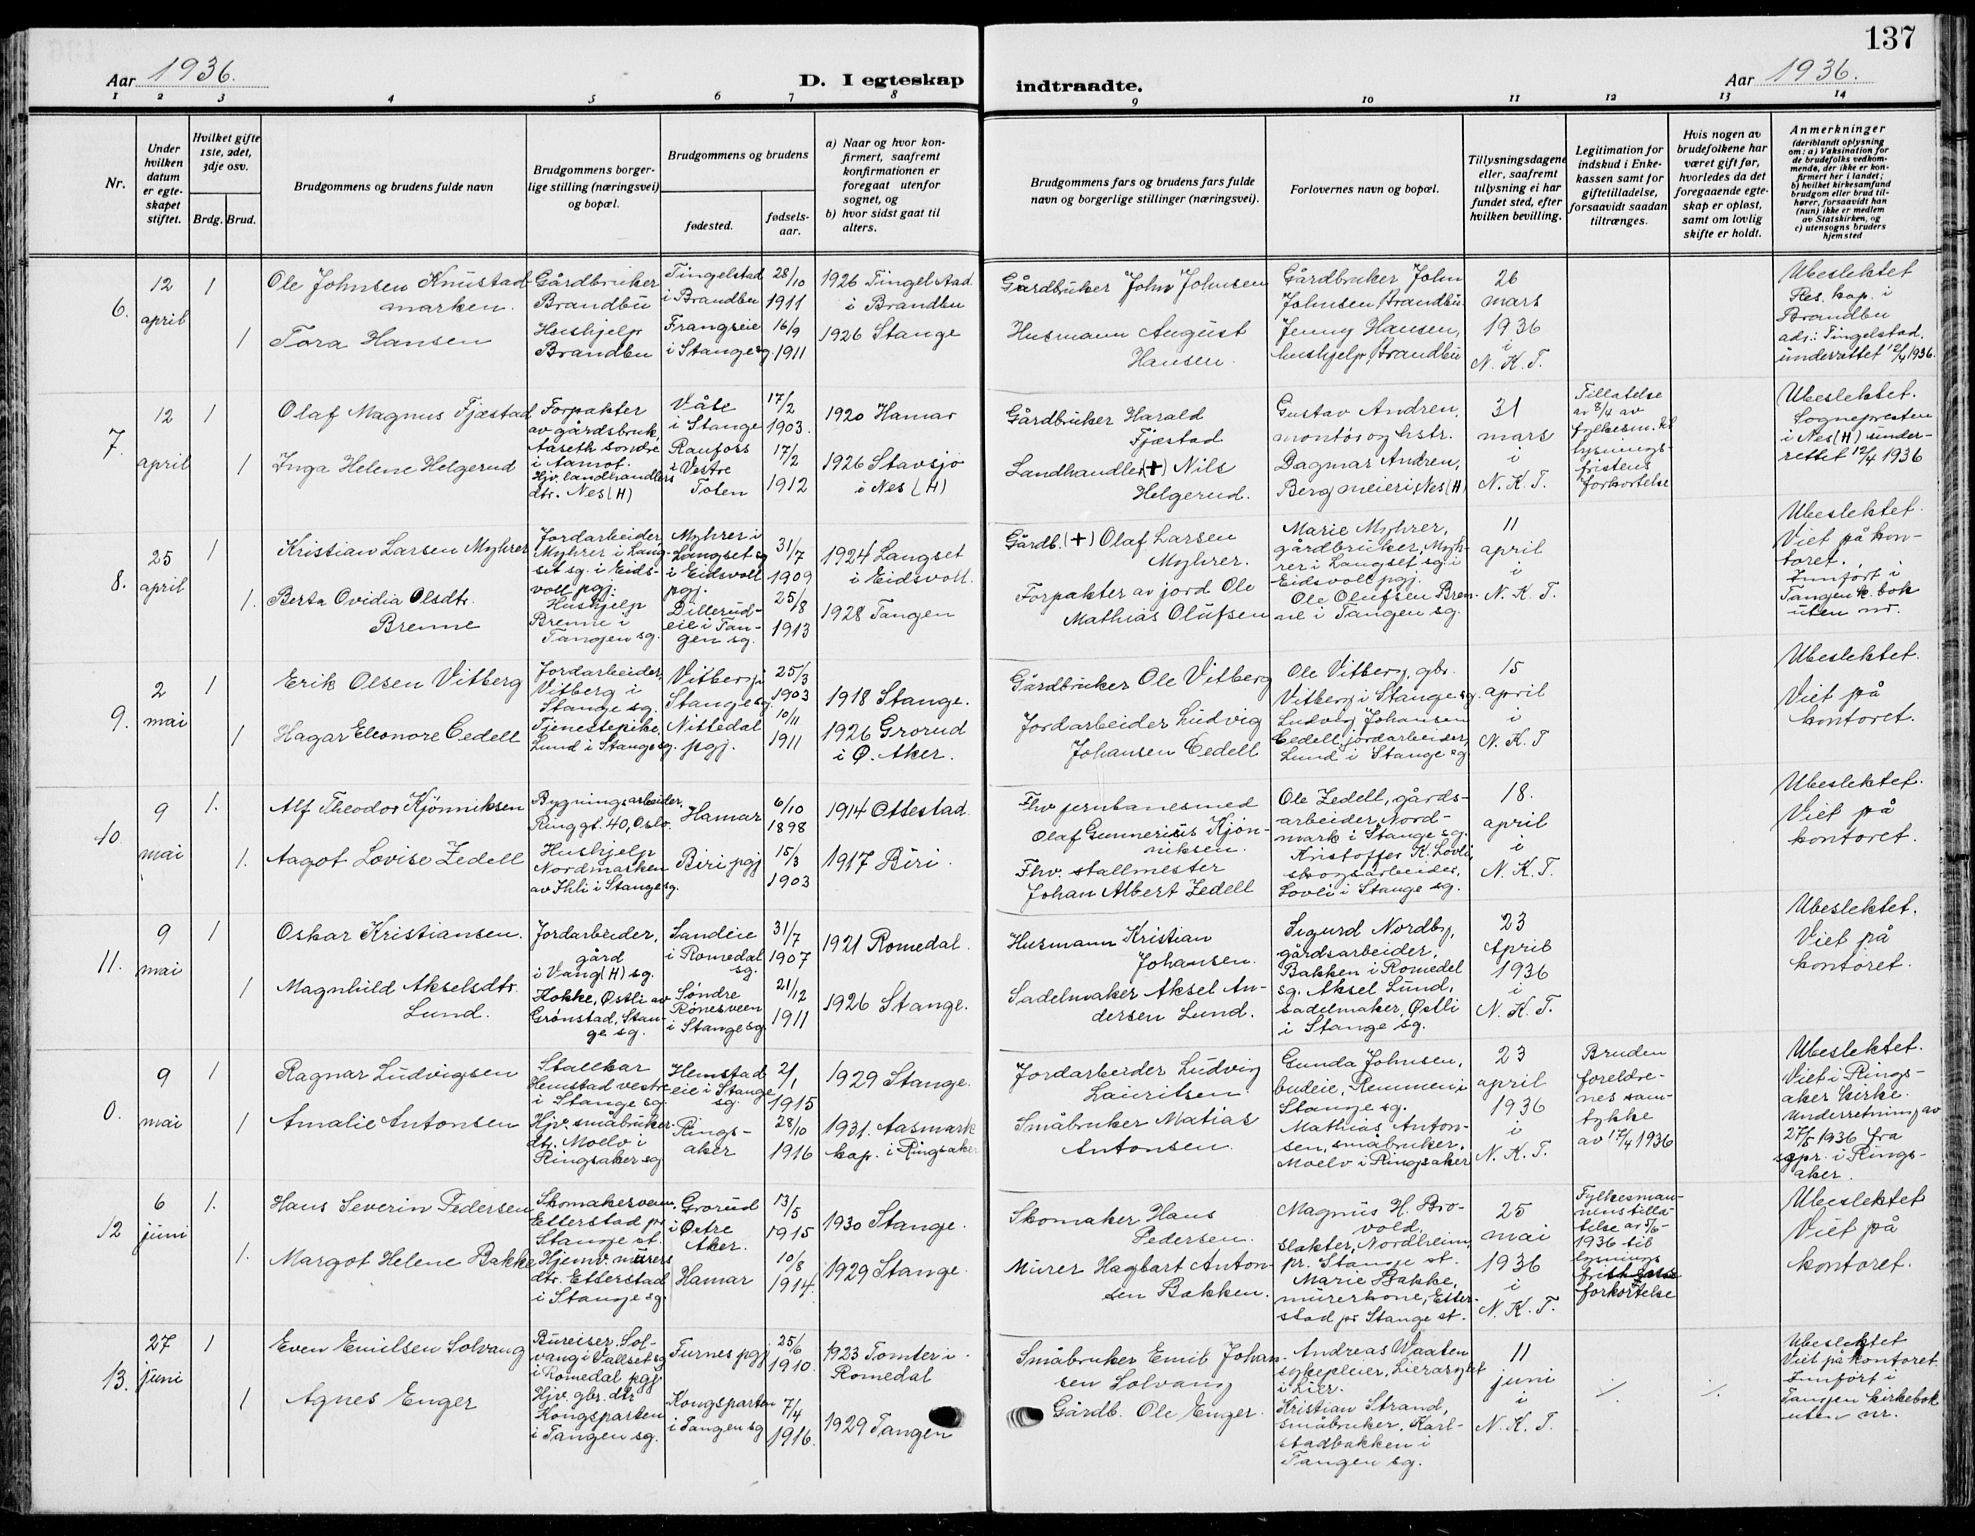 137
Aar 1936.
D. I egteskap
indtraadte.
Aar 1936.
1 2 3 4 5 6 7 8 9 10 11 12 13 14
Nr.
Under hvilken datum er egteskapet stiftet.
Hvilket gifte 1ste, 2det, 3dje osv.
Brdg. Brud.
Brudgommens og brudens fulde navn
Brudgommens borgerlige stilling (næringsvei) og bopæl.
Brudgommens og brudens
fødested.
fødselsaar.
a) Naar og hvor konfirmert, saafremt konfirmationen er foregaat utenfor sognet, og
b) hvor sidst gaat til alters.
Brudgommens fars og brudens fars fulde navn og borgerlige stillinger (næringsvei).
Forlovernes navn og bopæl.
Tillysningsdagene eller, saafremt tillysning ei har fundet sted, efter hvilken bevilling.
Legitimation for indskud i Enkekassen samt for giftetilladelse, forsaavidt saadan tiltrænges.
Hvis nogen av brudefolkene har været gift før, hvorledes da det foregaaende egteskap er opløst, samt om lovlig skifte er holdt.
Anmerkninger
(deriblandt oplysning om: a) Vaksination for de brudefolks vedkommende, der ikke er konfirmert her i landet; b) hvilket kirkesamfund brudgom eller brud tilhører, forsaavidt han (hun) ikke er medlem av Statskirken, og c) utensogns bruders hjemsted
6.
12 april
1
Ole Johnsen Knustad-
marken.
Gårdbruker
Brandbu
Tingelstad
i Brandbu
28/10
1911
1926 Tingelstad
i Brandbu
Gårdbruker John Johnsen
Gårdbruker John
Johnsen, Brandbu
26
mars
1936
i
N. K. T.
Ubeslektet
Res. kap. i
Brandbu
adr.: Tingelstad,
underrettet 12/4 1936.
1
Tora Hansen
Hushjelp
Brandbu
Frangseie
i Stange sg.
16/9
1911
1926 Stange
Husmann August
Hansen.
Jenny Hansen,
hushjelp, Brandbu
7.
12
april
1
Olaf Magnus Fjæstad
Forpakter
av gårdsbruk,
Aaseth søndre
i Aamot.
Våle
i Stange
17/2
1903.
1920 Hamar
Gårdbruker Harald
Fjæstad
Gustav Andren,
montør og hstr.
Dagmar Andren,
Berg meieri, Nes (H)
31
mars
i
N. K. T.
Tillatelse
av 8/4 av
fylkesm. til
lysnings-
fristens
forkortelse
Ubeslektet.
Sognepresten
i Nes (H) under-
rettet 12/4 1936
1
Inga Helene Helgerud
Hjv. landhandlers
dtr. Nes (H)
Raufoss
i Vestre
Toten
17/2
1912
1926 Stavsjø
i Nes (H)
Landhandler (+) Nils
Helgerud.
8.
25
april
1
Kristian Larsen Myhrer
Jordarbeider,
Myhrer i Lang-
set sg. i Eids-
voll pgj.
Myhrer i
Langset sg
i Eidsvoll
pgj.
31/7
1909
1924 Langset
i Eidsvoll.
Gårdb. (+) Olaf Larsen
Myhrer.
Marie Myhrer,
gårdbruker, Myh-
rer i Langset sg. i
Eidsvoll pgj.
Ole Olufsen Bren-
ne i Tangen sg.
11
april
i
N. K. T.
Ubeslektet.
Viet på kon-
toret.
Innført i
Tangen k. bok
uten nr.
1.
Berta Ovidia Olsdtr.
Brenne
Hushjelp
Brenne i
Tangen sg.
Dillerud-
eie i Tan-
gen sg.
25/8
1913
1928 Tangen
Forpakter av jord Ole
Mathias Olufsen
9.
2
mai
1
Erik Olsen Vitberg
Jordarbeider,
Vitberg i
Stange sg.
Vitberg i
Stange sg.
25/3
1903
1918 Stange.
Gårdbruker Ole Vitberg
Ole Vitberg, gbr.
Vitberg i Stange sg.
Ludvig Johansen
Cedell, jordarbeider,
Lund i Stange sg
15
april
i
N. K. T
Ubeslektet.
Viet på
kontoret.
1
Hagar Eleonore Cedell
Tjenestepike,
Lund i Stange sg.
Nittedal
pgj.
10/11
1911
1926 Grorud
i Ø. Aker.
Jordarbeider Ludvig
Johansen Cedell
10
9
mai
1.
Alf Theodor Kjønniksen
Bygningsarbeider,
Ring gt. 40, Oslo.
Hamar
6/10
1898
1914 Ottestad.
Fhv. jernbanesmed
Olaf Gunnerius Kjøn-
niksen.
Ole Zedell, gårds-
arbeider, Nord-
mark i Stange sg.
Kristoffer K. Løvli,
skogsarbeider,
Løvli i Stange sg.
18.
april
i
N. K. T.
Ubeslektet.
Viet på
kontoret.
1.
Aagot Lovise Zedell
Hushjelp
Nordmarken
av Ihli i Stange sg.
Biri pgj
15/3
1903
1917 Biri.
Fhv. stallmester
Johan Albert Zedell
11.
9
mai
1
Oskar Kristiansen.
Jordarbeider,
gård
i Vang (H) sg.
Sandeie
i Romedal
sg.
31/7
1907
1921 Romedal.
Husmann Kristian
Johansen.
Sigurd Nordby,
gårdsarbeider,
Bakken i Romedal
sg. Aksel Lund,
sadelmaker, Østli
i Stange sg.
23
april
1936
i
N. K. T.
Ubeslektet.
Viet på
kontoret.
1
Magnhild Akselsdtr.
Lund.
Kokke, Østli av
Grønstad, Stan-
ge sg.
Søndre
Rønesveen
i Stange sg
21/12
1911
1926 Stange.
Sadelmaker Aksel An-
dersen Lund.
0.
9
mai
1
Ragnar Ludvigsen
Stallkar
Hemstad vestre
i Stange sg.
Hemstad
eie i Stange
sg.
2/1
1915
1929 Stange.
Jordarbeider Ludvig
Lauritsen
Gunda Johnsen,
budeie, Remmen i
Stange sg.
Mathias Anton-
sen, småbruker,
Moelv i Ringsaker
23
april
1936
i
N. K. T.
Bruden
foreldre-
nes sam-
tykke
av 17/4 1936
Ubeslektet.
Viet i Rings-
aker kirke.
Underretning av
27/5 1936 fra
sgpr. i Rings-
aker.
1
Amalie Antonsen
Hjv. småbruker
dtr. Moelv i
Ringsaker sg
Rings-
aker
28/10
1916
1931. Aasmark
kap. i Ringsaker
Småbruker Matias
Antonsen.
12
6
juni
1.
Hans Severin Pedersen
Skomakersvenn
Etterstad pr
Stange st.
Grorud
i Østre
Aker.
13/5
1915
1930 Stange.
Skomaker Hans
Pedersen.
Magnus H. Bro-
vold,
slakter, Nordheim,
pr. Stange st.
Marie Bakke,
murerkone, Etter-
stad pr Stange st.
25
mai
1936
i
N. K. T.
Fylkesman-
nens tilla-
telse av 5/6-
1936 til
lysnings
forkortelse
Ubeslektet
Viet på
kontoret.
1.
Margot Helene Bakke
Hjemv. murers
dtr. Etterstad
i Stange sg.
Hamar
10/8
1914.
1929 Stange.
Murer Hagbart Anton-
sen Bakken.
13.
27
juni
1
Even Emilsen Solvang
Bureiser. Sol-
vang i Vallset sg
i Romedal pgj.
Furnes pgj
25/6
1910.
1923 Tomter i
Romedal
Småbruker Emil Johan-
sen Solvang
Andreas Waaten
sykepleier, Lierasylet
i Lier.
Kristian Strand,
småbruker, Karl-
stadbakken i
Tangen sg.
11
juni
i
N. K. T.
Ubeslektet
Viet på kontoret.
Innført i
Tangen kirkebok
uten nr.
1
Agnes Enger
Hjv. gbr. dtr
Kongsparten
i Tangen sg.
Kongsparten
i Tangen sg
7/4
1916.
1929 Tangen
Gårdb. Ole Enger.